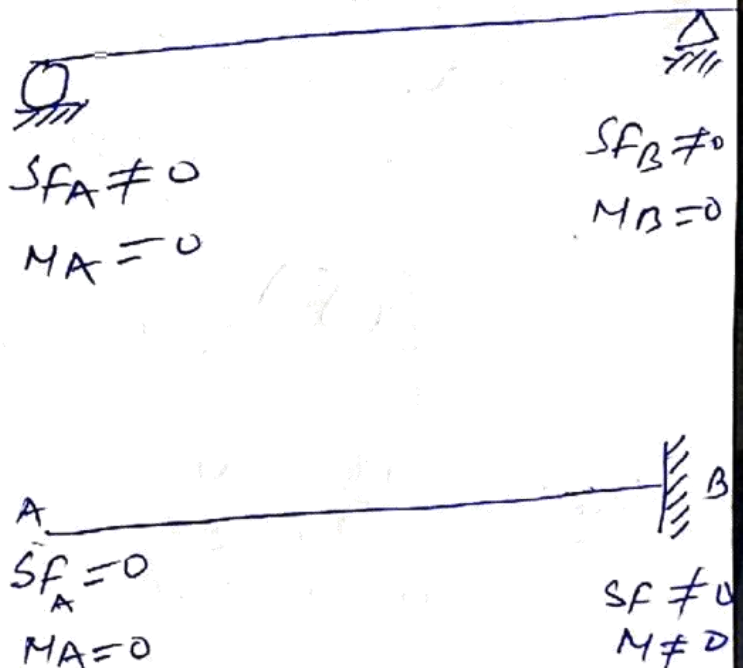 SFA ≠ 0
MA = 0
SFB ≠ 0
MB = 0
A
B
SFA = 0
MA = 0
SF ≠ 0
M ≠ 0